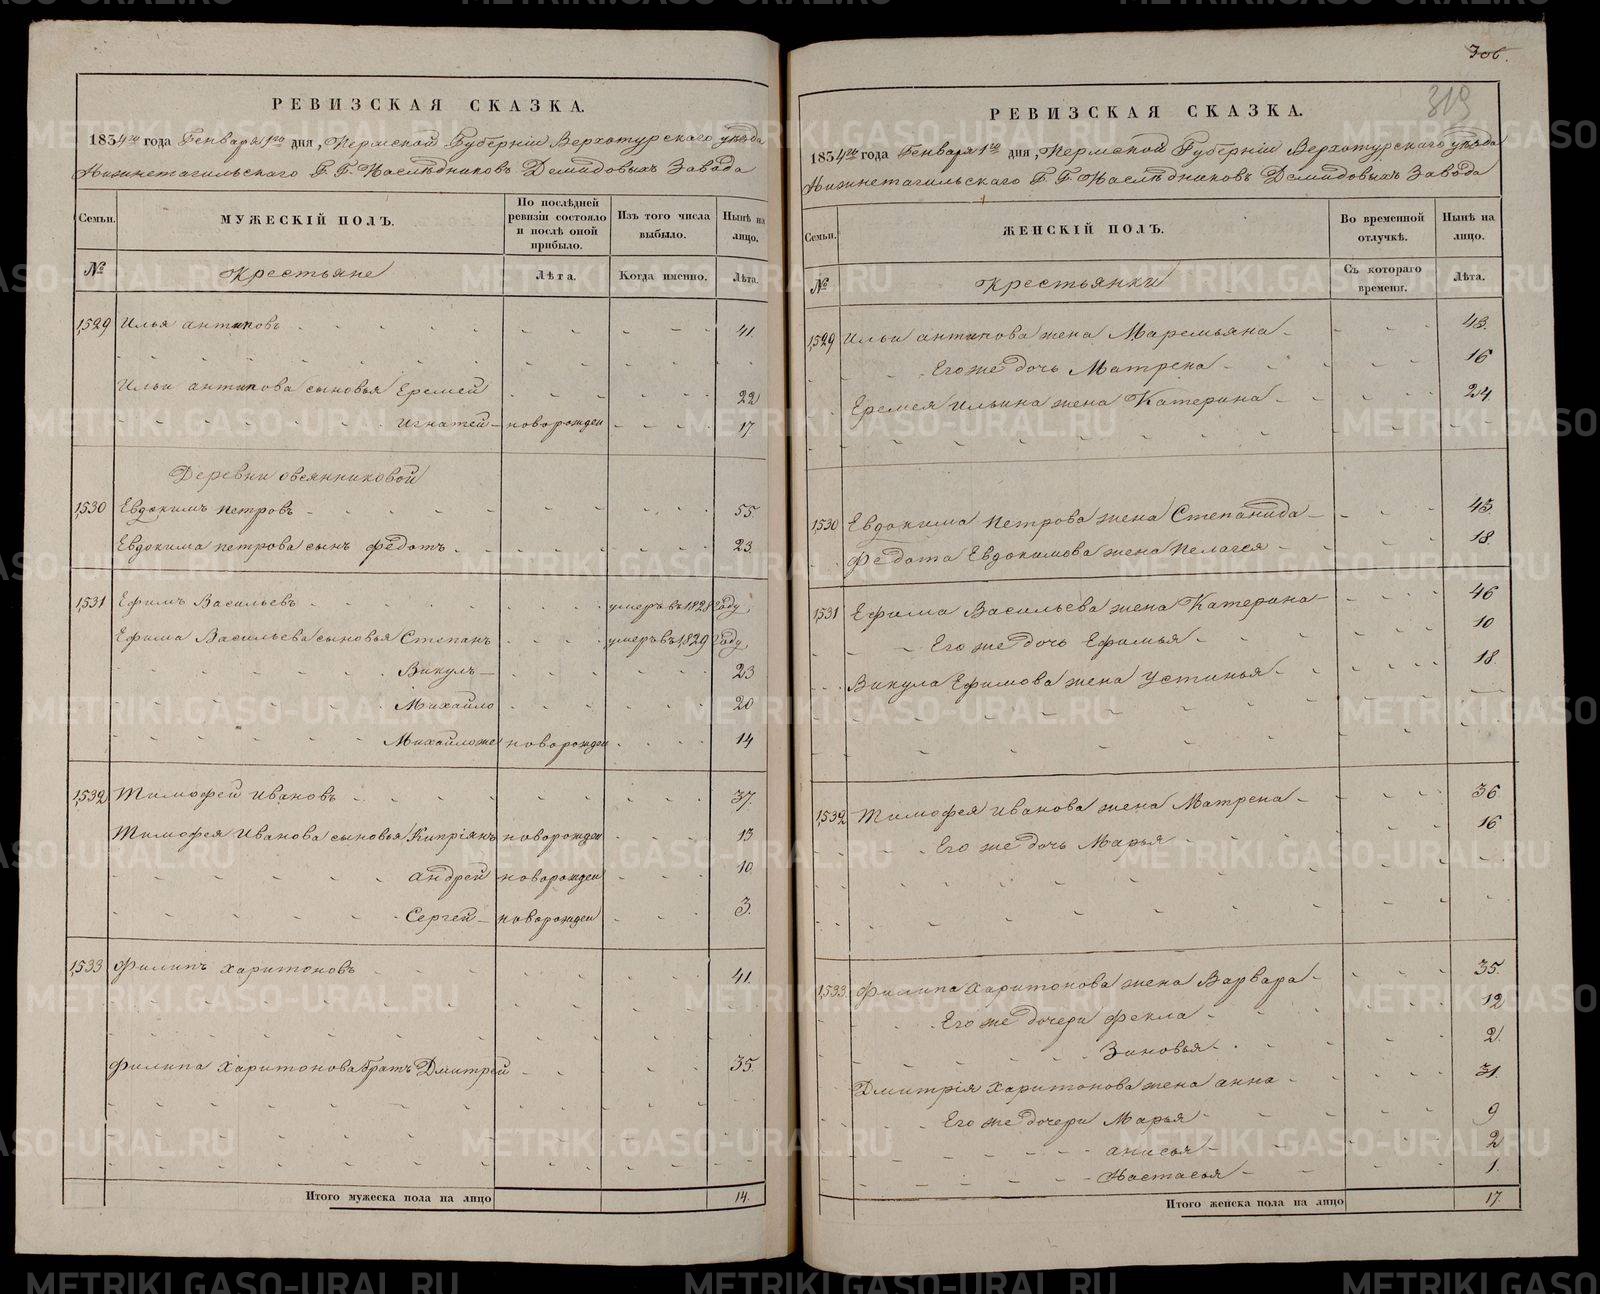 РЕВИЗСКАЯ СКАЗКА.
1834го года Генваря 1го дня, Пермской Губерніи Верхотурскаго уѣзда
Нижнетагильскаго Г. Г. Наслѣдниковъ Демидовыхъ Завода
Семьи.
МУЖЕСКІЙ ПОЛЪ.
По послѣдней ревизіи состояло и послѣ оной прибыло.
Изъ того числа выбыло.
Нынѣ на лицо.
№
Крестьяне
Лѣта.
Когда именно.
Лѣта.
1,529 Илья антиповъ 41.
Ильи антипова сыновья Еремей 22
Игнатей новорожден 17
Деревни овсянниковой
1,530 Евдокимъ петровъ 55.
Евдокима петрова сынъ федотъ 23.
1,531 Ефимъ Васильевъ умеръ въ 1828 году
Ефима Васильева сыновья Степанъ умеръ въ 1,829 году
Викулъ 23
Михайло 20
Михайло же новорожден 14
1,532 Тимофей ивановъ 37.
Тимофея Иванова сыновья Кипріянъ новорожден 13
андрей новорожден 10.
Сергей новорожден 3.
1,533 Филипъ харитоновъ 41.
Филипа харитонова братъ Дмитрей 35.
Итого мужеска пола на лицо 14.
306.
319
РЕВИЗСКАЯ СКАЗКА.
1834го года Генваря 1го дня, Пермской Губерніи Верхотурскаго уѣзда
Нижнетагильскаго Г. Г. Наслѣдниковъ Демидовыхъ Завода
Семьи.
ЖЕНСКІЙ ПОЛЪ.
Во временной отлучкѣ.
Нынѣ на лицо.
№
Крестьянки
Съ котораго времени.
Лѣта.
1,529 Ильи антипова жена Маремьяна 43.
Его же дочь Матрена 16
Еремея ильина жена Катерина 24
1,530 Евдокима петрова жена Степанида 43.
федота Евдокимова жена пелагея 18.
1,531 Ефима Васильева жена Катерина 46
Его же дочь Ефимья 10
Викула Ефимова жена устинья 18
1,532 Тимофея иванова жена Матрена 36
Его же дочь Марья 16
1,533 филипа харитонова жена Варвара 35.
Его же дочери фекла 12
Зиновья 2.
Дмитрія харитонова жена анна 31.
Его же дочери Марья 9
анисья 2
Настасья 1.
Итого женска пола на лицо 17.
METRIKI.GASO-URAL.RU